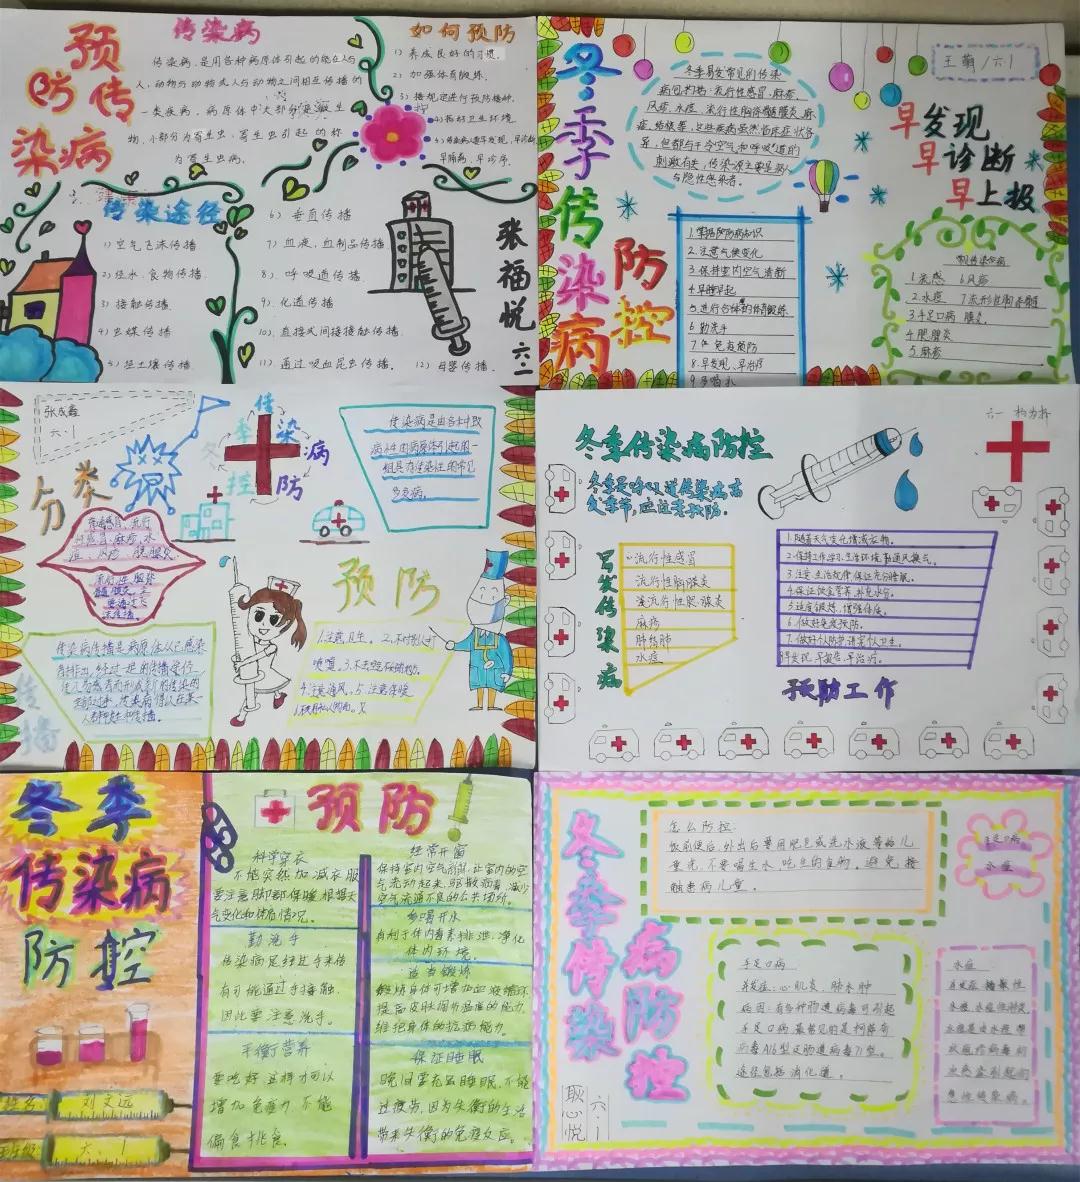 预
防传
染病
传染病
传染病,是用各种病原体引起的能在人与
人、动物与动物或人与动物之间相互传播的
一类疾病,病原体中大部分是微生
物,小部分为寄生虫,寄生虫引起的称
为寄生虫病。
如何预防
1)养成良好的习惯。
2)加强体育锻炼。
3)按规定进行预防接种。
4)搞好卫生环境
早隔离、早诊序。
传染途径
1)空气飞沫传播
2)经水、食物传播
3)接触传播
4)虫媒传播
5)经土壤传播
6)垂直传播
7)血液、血制品传播
8)呼吸道传播
9)化道传播
10)直接或间接接触传播
11)通过吸血昆虫传播。
12)母婴传播。
张福悦
六·1
冬季传染病
防控
王萌/六1
早发现
早诊断
早上报
冬季易发常见的传染
病包括:流行性感冒、麻疹、
风疹、水痘、流行性脑脊髓膜炎、麻
疹、结核等,这些疾病虽然临床症状各
异,但都与干冷空气和呼吸道的
刺激有关,传染源主要是病人
与隐性感染者。
1.掌握预防病知识
2.注意气候变化
3.保持室内空气清新
4.早睡早起
5.进行合体的体育锻炼
6.勤洗手
7.免疫预防
8.早发现、早治疗
9.多喝水
1.流感 6.风疹
2.水痘 7.流行性脑脊髓
3.手足口病 膜炎
4.肥腺炎
5.麻疹
张成鑫
六·1
冬季传染病
防控
分类
传染病是由各种致
病性的病原体引起的一
组具有传染性的常见
多发病。
预防
1.注意卫生。2.不对别人打
喷嚏。
4.注意通风。5.注意保暖
传染病传播是病原体从已感染
者排出,经过一定的传播途径,
传播
六一
冬季传染病防控
冬季是呼吸道传染病高
发季节,应注意预防。
易发传染病
流行性感冒
流行性脑膜炎
流行性腮腺炎
麻疹
肺结肺
水痘
1.随着天气变化增减衣物。
2.保持工作学习、生活环境勤通风换气。
3.注意生活规律保证充分睡眠。
4.保证饮食营养、补充水分。
5.适度锻炼,增强体质。
6.做好免疫预防。
7.做好个防护,讲究个人卫生。
早发现、早报告、早治疗。
预防工作
冬季
传染病
防控
姓名: 刘文远
班级: 六·1
预防
科学穿衣
不能突然加减衣服
要注意脚部保暖,根据天
气变化和体质情况。
勤洗手
传染病足经过手来传
有可能通过手接触,
因此要注意洗手。
平衡营养
要吃好这样才可以
增加免疫力,不能
偏食挑食。
经常开窗
保持室内空气清新,让室内的空
气流动起来,驱散病毒,减少
空气流通不良的公共场所。
多喝开水
有利于体内毒素排泄,净化
体内环境。
适当锻炼
锻炼身体可增加血液循环
提高皮肤调节温度的能力,
维护身体的抗病能力。
保证睡眠
晚间需充足睡眠,不能
过疲劳,因为失衡的生活
带来失衡的免疫反应。
冬季传染
病防控
耿心悦
六·1
怎么防控:
饭前便后、外出后要用肥皂或洗水液等给儿
童洗,不要喝生水,吃生的食物,避免接
触患病儿童。
手足口病
水痘
手足口病
并发症:心肌炎、肺水肿
病因:有多种肠道病毒可引起
手足口病,最常见的是柯萨奇
病毒A16型及肠道病毒71型。
途径包括消化道。
水痘
水痘、水痘性肺炎
水痘是由水痘-带
状疱疹病毒初
次感染引起的
急性传染病。